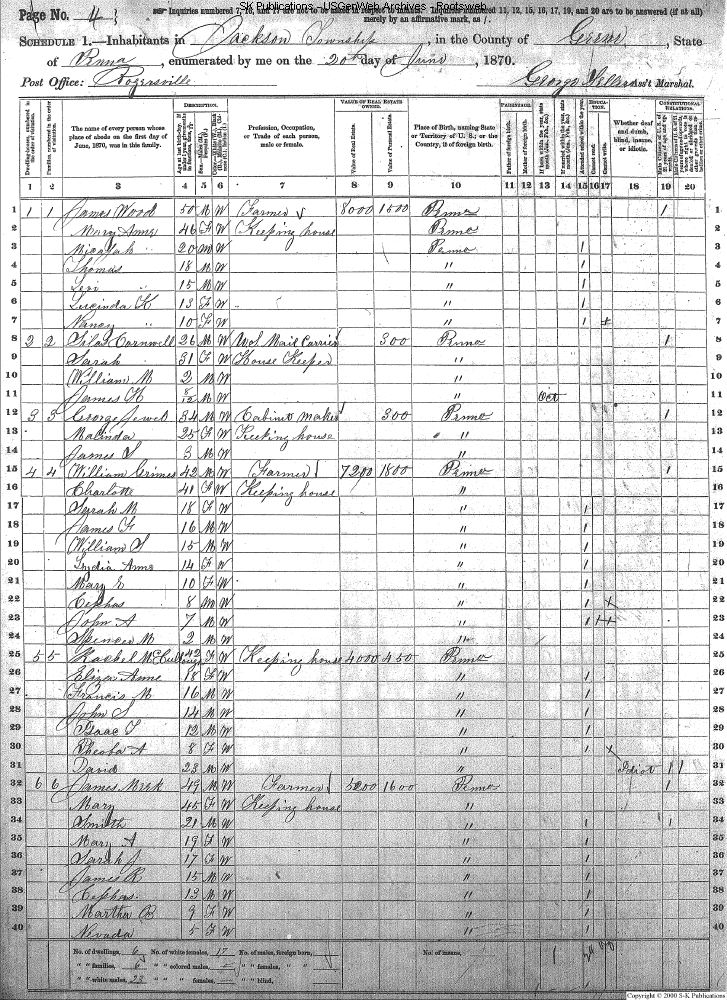 SK Publications - USGenWeb Archives - Rootsweb
Page No. 4
Inquiries numbered 7, 16, and 17 are not to be asked in respect to infants. Inquiries numbered 11, 12, 15, 16, 17, 19, and 20 are to be answered (if at all)
merely by an affirmative mark, as /.
SCHEDULE 1.—Inhabitants in Jackson Township, in the County of Greene, State
of Penna, enumerated by me on the 20th day of June, 1870.
Post Office: Rogersville George Ass't Marshal.
Dwelling-houses, numbered in the order of visitation.
Families, numbered in the order of visitation.
The name of every person whose place of abode on the first day of June, 1870, was in this family.
DESCRIPTION.
Profession, Occupation, or Trade of each person, male or female.
VALUE OF REAL ESTATE OWNED.
Value of Real Estate.
Value of Personal Estate.
Place of Birth, naming State or Territory of U. S.; or the Country, if of foreign birth.
PARENTAGE.
Father of foreign birth.
Mother of foreign birth.
EDUCATION.
Attended school within the year.
Cannot read.
Cannot write.
Whether deaf and dumb, blind, insane, or idiotic.
CONSTITUTIONAL RELATIONS.
1 2 3 4 5 6 7 8 9 10 11 12 13 14 15 16 17 18 19 20
1 1 1 James Wood 50 M W Farmer 8000 1500 Penna 1 1
2 Mary Anne 46 F W Keeping house Penna 2
3 Micajah " 20 M W Penna / 3
4 Thomas 18 M W " / 4
5 Levi " 15 M W " / 5
6 Lucinda K 13 F W " / 6
7 Nancy " 10 F W " / + 7
8 2 2 Silas Cornwell 26 M W Mail Carrier 300 Penna 1 8
9 Sarah 31 F W House Keeper " 9
10 William M 2 M W " 10
11 James H 8/12 M W " Oct 11
12 3 3 George Jewel 34 M W Cabinet maker 300 Penna 1 12
13 Malinda 25 F W Keeping house " 13
14 James S 3 M W " 14
15 4 4 William Grimes 42 M W Farmer 7200 1800 Penna 1 15
16 Charlotte 41 F W Keeping house " 16
17 Sarah M 18 F W " / 17
18 James F 16 M W " / 18
19 William S 15 M W " / 19
20 Lydia Anne 14 F W " / 20
21 Mary E 10 F W " / 21
22 Cephas 8 M W " / + 22
23 John A 7 M W " / + + 23
24 Spencer M 2 M W " 24
25 5 5 Rachel 42 F W Keeping house 4000 450 Penna 25
26 Eliza Anne 18 F W " / 26
27 Francis M 16 M W " / 27
28 John S 14 M W " / 28
29 Isaac T 12 M W " / 29
30 Pheoba A 8 F W " / + 30
31 David 23 M W " Idiot 1 1 31
32 6 6 James Meek 49 M W Farmer 5200 1600 Penna 1 32
33 Mary 45 F W Keeping house " 33
34 Smith 21 M W " / 1 34
35 Mary A 19 F W " / 35
36 Sarah J 17 F W " / 36
37 James R 15 M W " / 37
38 Cephas 13 M W " / 38
39 Martha B 9 F W " / 39
40 Nevada 5 F W " / 40
No. of dwellings, 6 No. of white females, 17 No. of males, foreign born, No. of insane,
" " families, 6 " " colored males, " " females, " "
" " white males, 23 " " females, " " blind,
Copyright © 2000 S-K Publications